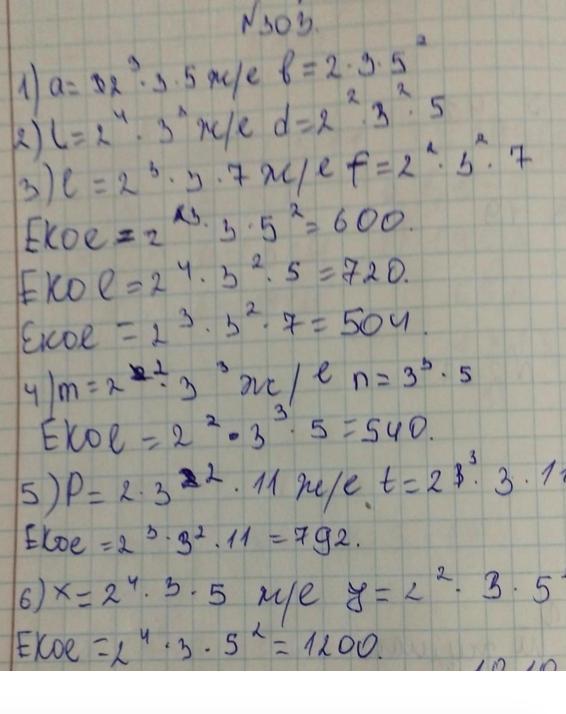 №303.
1) a = 2³ · 3 · 5 ж/е b = 2 · 3 · 5²
2) l = 2⁴ · 3² ж/е d = 2² · 3² · 5
3) l = 2³ · 3 · 7 ж/е f = 2² · 3² · 7
ЕКОЕ = 2³ · 3 · 5² = 600.
ЕКОЕ = 2⁴ · 3² · 5 = 720.
ЕКОЕ = 2³ · 3² · 7 = 504.
4) m = 2² · 3³ ж/е n = 3³ · 5
ЕКОЕ = 2² · 3³ · 5 = 540.
5) P = 2 · 3² · 11 ж/е t = 2³ · 3 · 11
ЕКОЕ = 2³ · 3² · 11 = 792.
6) x = 2⁴ · 3 · 5 ж/е y = 2² · 3 · 5²
ЕКОЕ = 2⁴ · 3 · 5² = 1200.